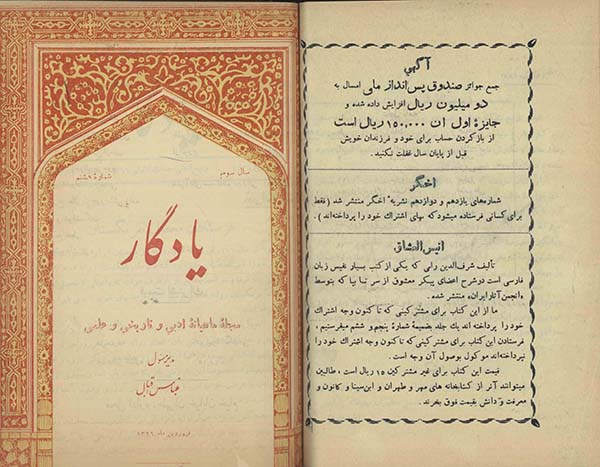 سال سوم
شمارهٔ هشتم
یادگار
مجلهٔ ماهیانهٔ ادبی و تاریخی و علمی
مدیر مسول
عباس اقبال
فروردین ماه ۱۳۲۶
آگهی
جمع جوائز صندوق پس‌انداز ملی امسال به
دو میلیون ریال افزایش داده شده و
جایزهٔ اول آن ۱۵۰,۰۰۰ ریال است
از باز کردن حساب برای خود و فرزندان خویش
قبل از پایان سال غفلت نکنید.
اخگر
شماره‌های یازدهم و دوازدهم نشریهٔ اخگر منتشر شد (فقط
برای کسانی فرستاده میشود که بهای اشتراك خود را پرداخته‌اند).
انیس العشاق
تألیف شرف‌الدین رامی که یکی از کتب بسیار نفیس زبان
فارسی است در شرح اعضای پیکر معشوق از سر تا پا که بتوسط
«انجمن آثار ایران» منتشر شده.
ما از این کتاب برای مشترکینی که تا کنون وجه اشتراك
خود را پرداخته‌اند یك جلد بضمیمهٔ شمارهٔ پنجم و ششم میفرستیم،
فرستادن این کتاب برای مشترکینی که تا کنون وجه اشتراك خود را
نپرداخته‌اند موکول بوصول آن وجه است.
قیمت این کتاب برای غیر مشترکین ۱۵ ریال است، طالبین
میتوانند آنرا از کتابخانه‌های مهر و طهران و ابن‌سینا و کانون و
معرفت و دانش بقیمت فوق بخرند.